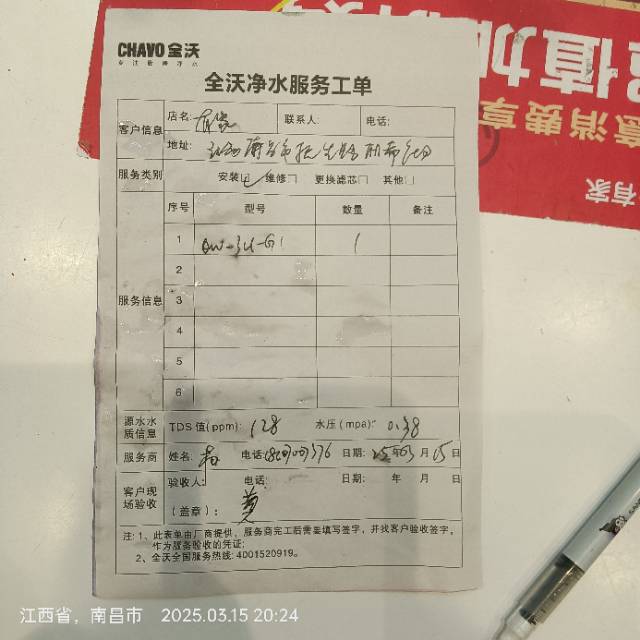 CHAVO全沃
专注极棒净水
全沃净水服务工单
客户信息
店名: 有家 联系人: 电话:
地址: 江西南昌市
服务类别 安装☑ 维修□ 更换滤芯□ 其他□
服务信息
序号 型号 数量 备注
1 QW-3U-G1 1
2
3
4
5
6
源水水质信息 TDS 值(ppm): 128 水压(mpa): 0.38
服务商 姓名: 电话: 日期: 25年03月15日
客户现场验收
验收人: 电话: 日期: 年 月 日
(盖章):
注: 1、此表单由厂商提供, 服务商完工后需要填写签字, 并找客户验收签字,
作为服务验收的凭证;
2、全沃全国服务热线: 4001520919。
超值加
意消费享
有家
江西省, 南昌市 2025.03.15 20:24